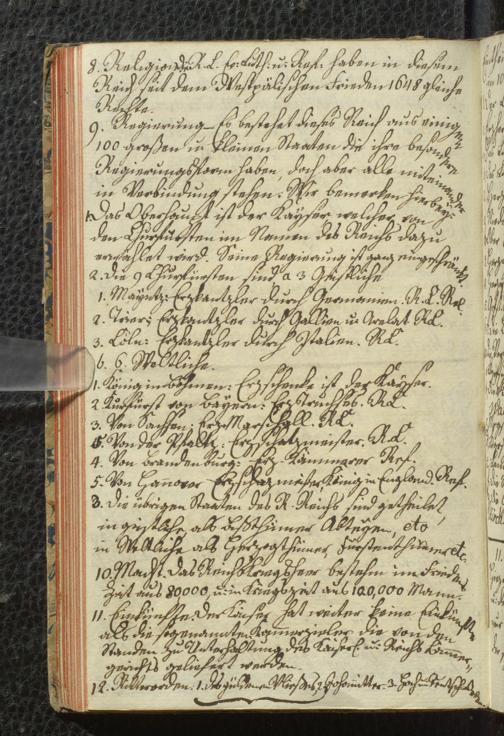 8. Religion. Die R.C. Ev: Luth: u: Ref: haben in diesem
Reich seit dem Westpälischen Frieden 1648 gliche
Rechte.
9. Regierung. Es bestehet dieses Reich aus einigen
100 großen u: kleinen Staaten die ihre besondere
Regierungsform haben, doch aber alle miteinander
in Verbindung stehen. Wir bemerken hierbey:
1. Das Oberhaupt ist der Kayser welcher von
den Churfürsten im Namen des Reichs dazu
erwehlet wird. Seine Regierung ist ganz eingeschränkt
2. Die 9 Churfürsten sind a 3 Geistliche
1. Mayntz: Erzkantzler durch Germanien. R.C. Rel.
2. Trier: Erzkantzler durch Gallien u: Arelat R.C.
3. Cöln: Erzkantzler durch Italien. R.C.
b. 6. Weltliche.
1. König in Böhmen: Erzschenke ist der Kayser.
2. Kurfürst von Bayern: Erztruchses. R.C.
3. Von Sachsen: Erz-Marschall. R.C.
Von der Pfaltz: Erzschatzmeister. R.C.
4. Von Brandenburg: Erz-Kämmerer Ref.
5. Von Hanover Erzschatzmeister König in England. Ref.
3. Die übrigen Staaten des R. Reichs sind getheilet,
in geistliche als Bißthümer Abteyen, etc
in Weltliche als Herzogthümer, Fürstenthümer etc.
10. Macht. Das Reichskriegsheer bestehn im Friedens
Zeit aus 80000, u: in Kriegszeit aus 120,000 Mann.
11. Einkünfte. Der Kaiser hat weiter keine Einkünfte
als die sogenannten Kamerzieler die von den
Standen zu Unterhaltung des Kaiserl. u: Reichs Kamer,
gerichts geliefert werden.
12. Ritterorden. 1. des güldenen Vließes 2. Johanitter 3. Hoch u: Teutsch